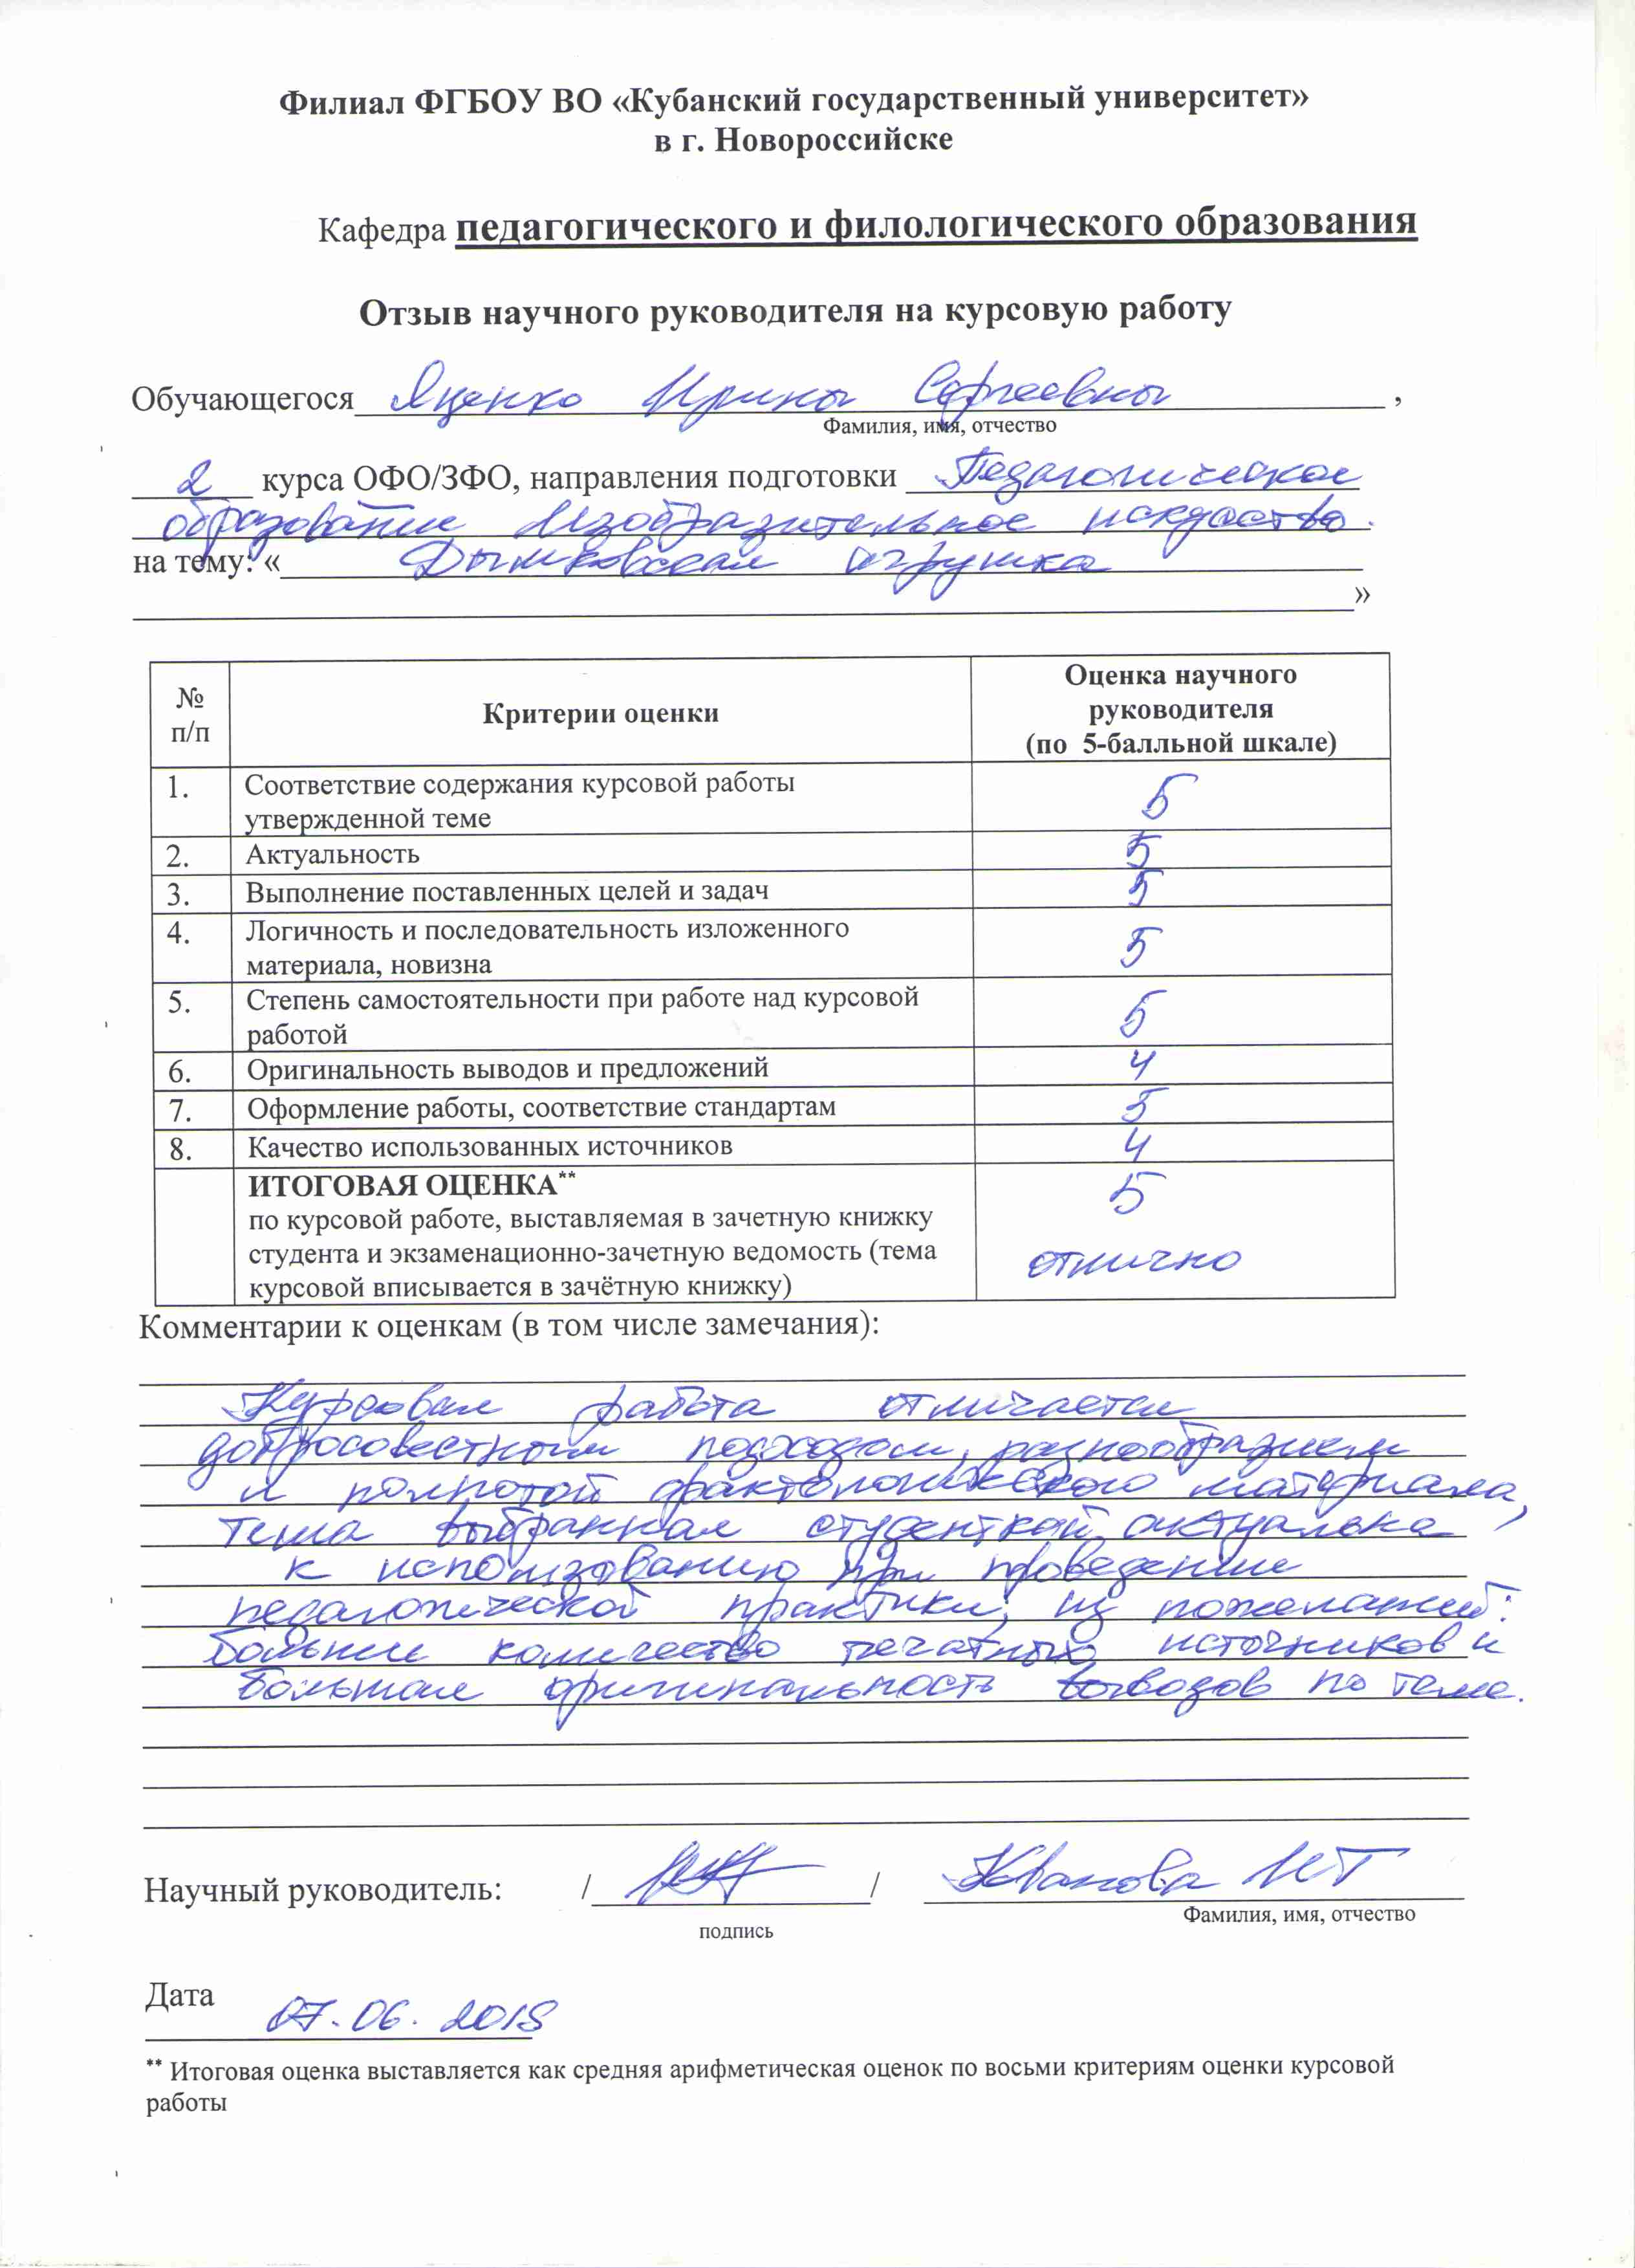 Филиал ФГБОУ ВО «Кубанский государственный университет»
в г. Новороссийске
Кафедра педагогического и филологического образования
Отзыв научного руководителя на курсовую работу
Обучающегося Яценко Ирины Сергеевны ,
Фамилия, имя, отчество
2 курса ОФО/ЗФО, направления подготовки Педагогическое
образование Изобразительное искусство.
на тему: « Дымковская игрушка
»
№ п/п Критерии оценки Оценка научного руководителя (по 5-балльной шкале)
1. Соответствие содержания курсовой работы утвержденной теме 5
2. Актуальность 5
3. Выполнение поставленных целей и задач 5
4. Логичность и последовательность изложенного материала, новизна 5
5. Степень самостоятельности при работе над курсовой работой 5
6. Оригинальность выводов и предложений 4
7. Оформление работы, соответствие стандартам 5
8. Качество использованных источников 4
ИТОГОВАЯ ОЦЕНКА** 5
по курсовой работе, выставляемая в зачетную книжку
студента и экзаменационно-зачетную ведомость (тема отлично
курсовой вписывается в зачётную книжку)
Комментарии к оценкам (в том числе замечания):
Курсовая работа отличается
добросовестным подходом, разнообразием
и полнотой фактологического материала,
тема выбранная студенткой актуальна
к использованию при проведении
педагогической практики, из пожеланий:
больше количество печатных источников и
большая оригинальность выводов по теме.
Научный руководитель: / / Иванова ИТ
подпись
Фамилия, имя, отчество
Дата
07.06.2018
** Итоговая оценка выставляется как средняя арифметическая оценок по восьми критериям оценки курсовой
работы